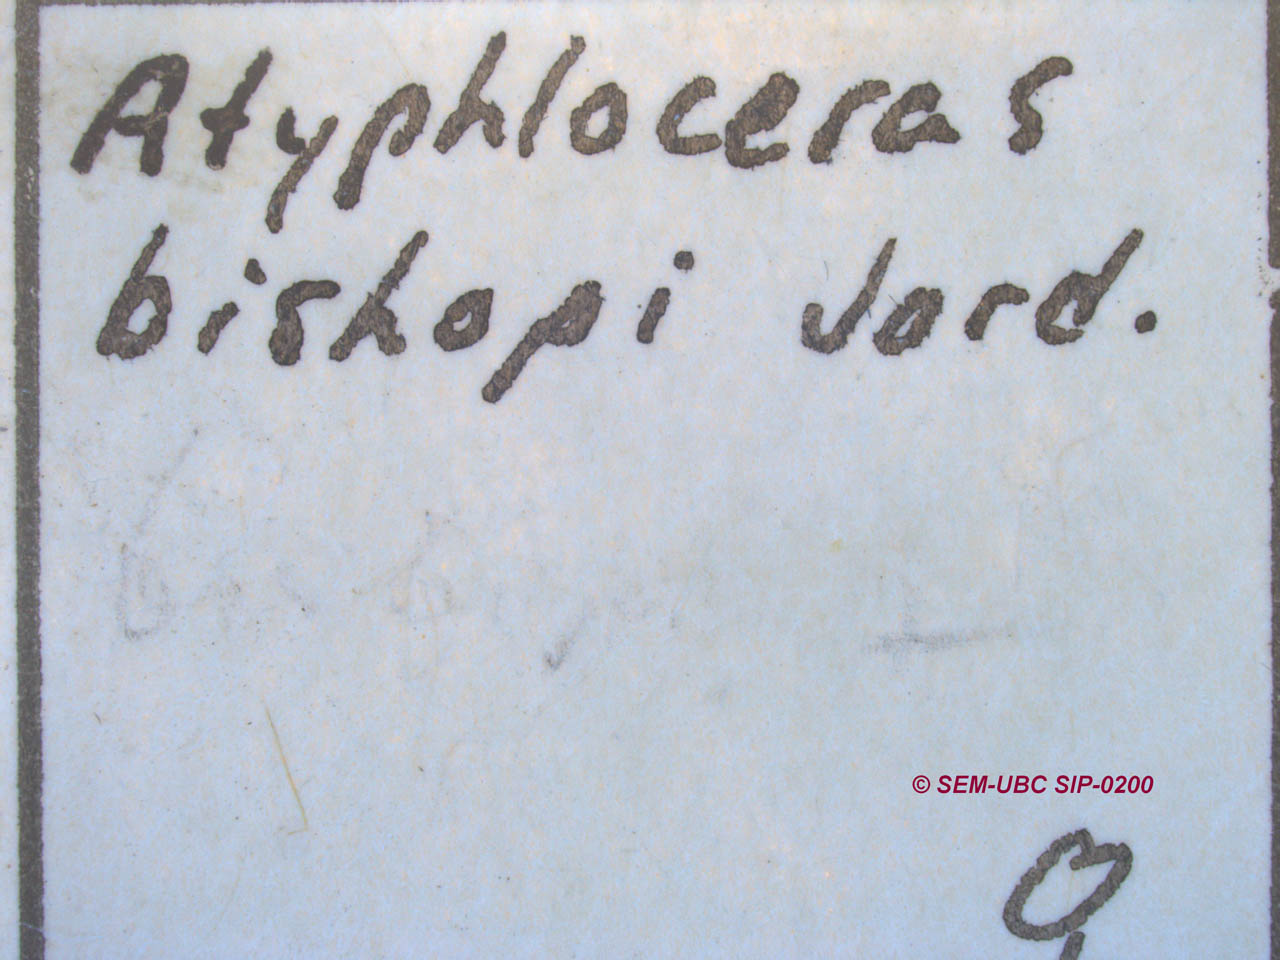 Atyphloceras
bishopi Jord.
© SEM-UBC SIP-0200
♀